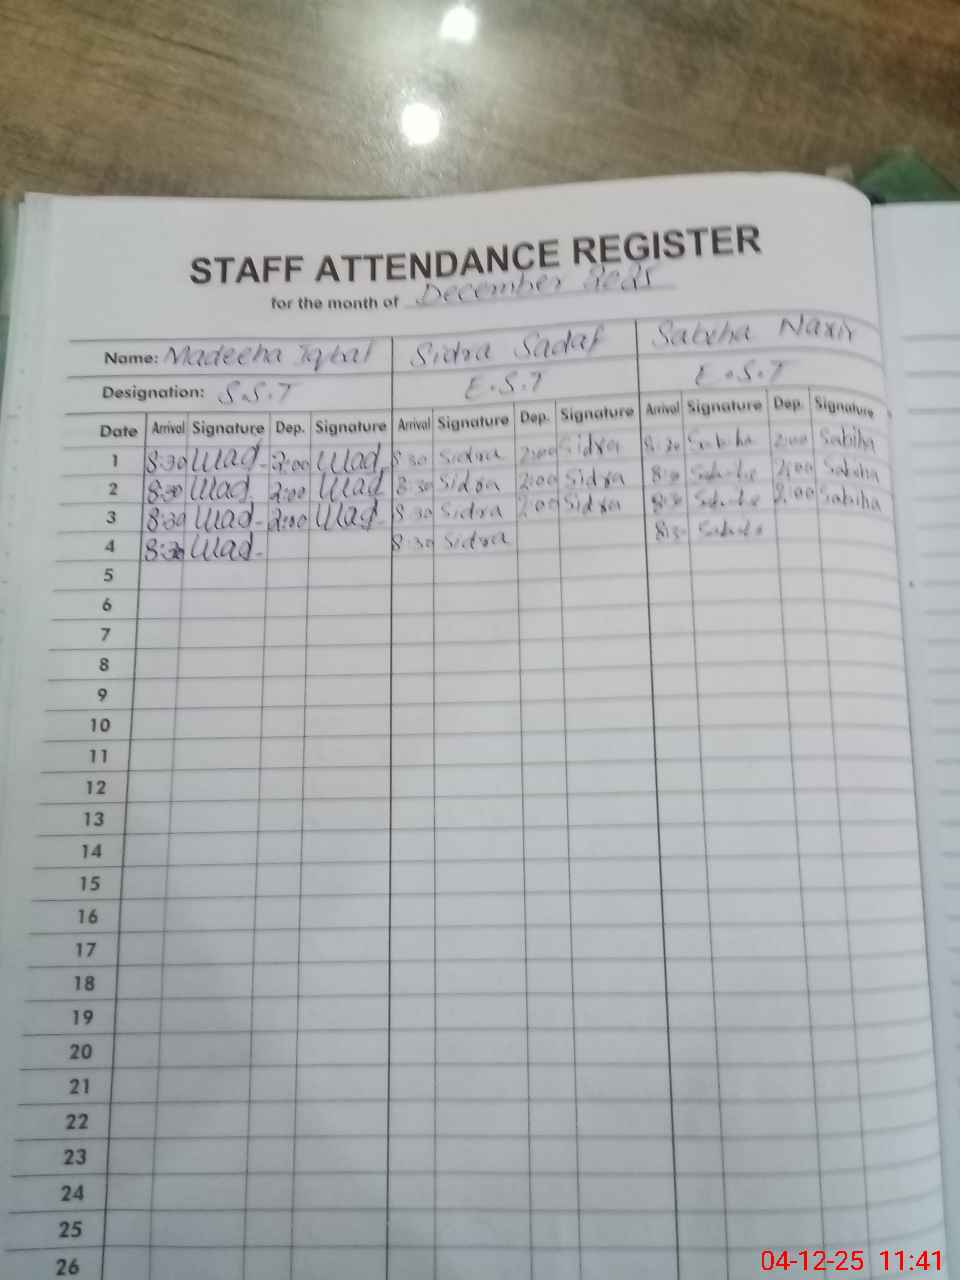 STAFF ATTENDANCE REGISTER
for the month of December 2025
Name: Madeeha Iqbal Sidra Sadaf Sabiha Nazir
Designation: S.S.T E.S.T E.S.T
Date Arrival Signature Dep. Signature Arrival Signature Dep. Signature Arrival Signature Dep. Signature
1 8:30 2:00 8:30 Sidra 2:00 Sidra 8:30 Sabiha 2:00 Sabiha
2 8:30 2:00 8:30 Sidra 2:00 Sidra 8:30 Sabiha 2:00 Sabiha
3 8:30 2:00 8:30 Sidra 2:00 Sidra 8:30 Sabiha 2:00 Sabiha
4 8:30 8:30 Sidra 8:30 Sabiha
5
6
7
8
9
10
11
12
13
14
15
16
17
18
19
20
21
22
23
24
25
26
04-12-25 11:41